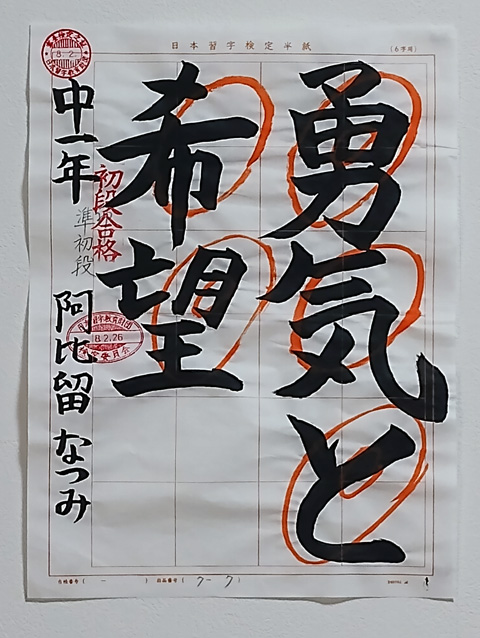 日本習字検定半紙
(6字用)
勇気と
希望
初段合格
中一年
準初段
阿比留 なつみ
8.2.
8.2.26